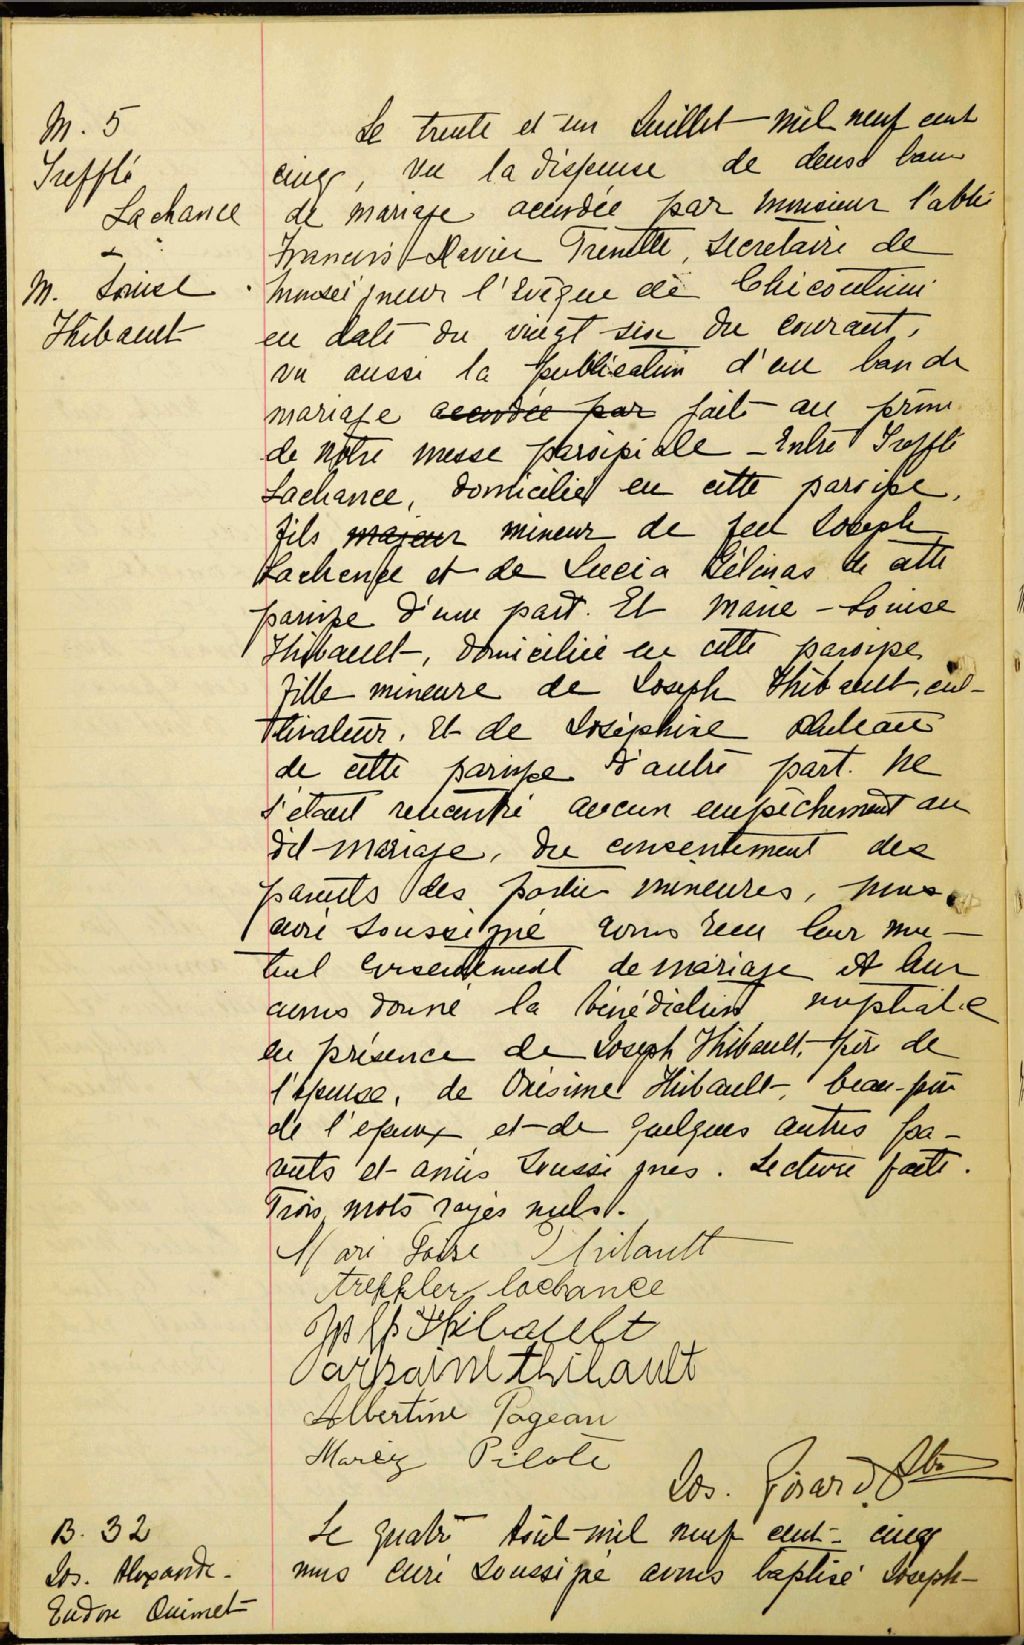 M. 5
Trefflé
Lachance
&
M. Louise
Thibault
Le trente et un Juillet mil neuf cent
cinq, vu la dispense de deux bans
de mariage accordée par monsieur l'abbé
Francis-Xavier Tremblé, Secretaire de
Monseigneur l'Evêque de Chicoutimi
en date du vingt six du courant,
vu aussi la publication d'un ban de
mariage accordée par fait au prône
de notre messe paroissiale - Entre Trefflé
Lachance, domicilié en cette paroisse,
fils majeur mineur de feu Joseph
Lachance et de Lucia Gélinas de cette
paroisse d'une part. Et Marie-Louise
Thibault, domiciliée en cette paroisse
fille mineure de Joseph Thibault, cul-
tivateur, et de Joséphine
de cette paroisse d'autre part. Ne
s'étant rencontré aucun empêchement au
dit mariage, du consentement des
parents des parties mineures, nous
curé soussigné avons reçu leur mu-
tuel consentement de mariage et leur
avons donné la bénédiction nuptiale
en présence de Joseph Thibault, père de
l'épouse, de Onésime Thibault, beau-père
de l'époux et de quelques autres pa-
rents et amis soussignés. Lecture faite.
Trois mots rayés nuls.
Mari Loise Thibault
treffler lachance
Thibault
thibault
Albertine Pageau
Pilote
Jos. Girard Ptre
B. 32
Jos. Alexandre-
Eudore Ouimet
Le quatre Août mil neuf cent-cinq
nous curé soussigné avons baptisé Joseph-